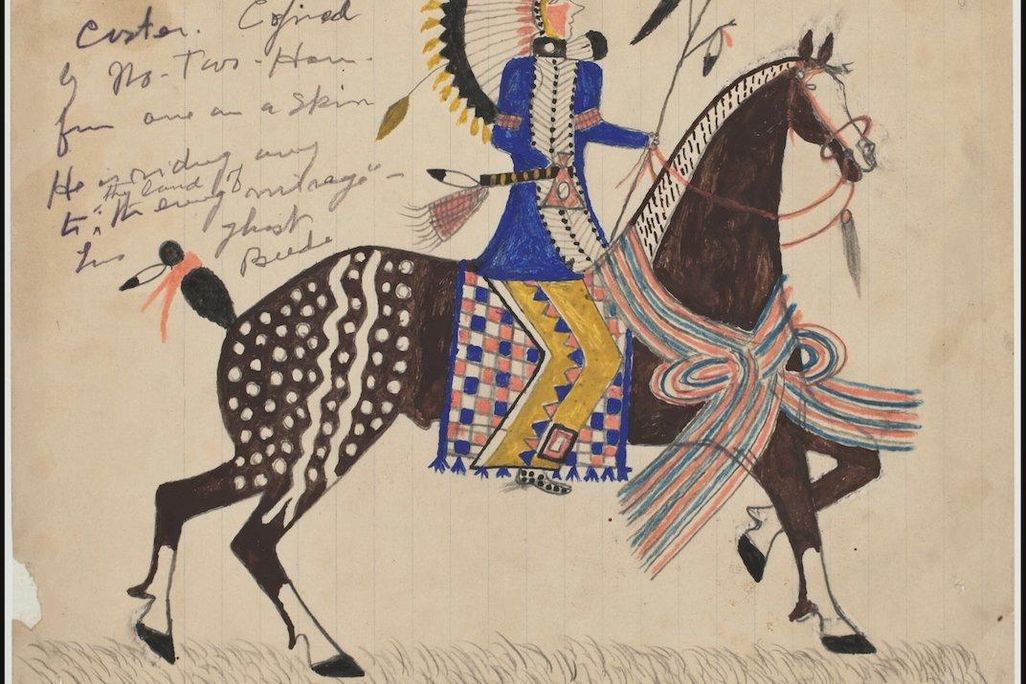 Custer. Copied
by No-Two-Horn-
from one on a skin
He is riding away
the land of
to "the mirage"-
his ghost
Beede